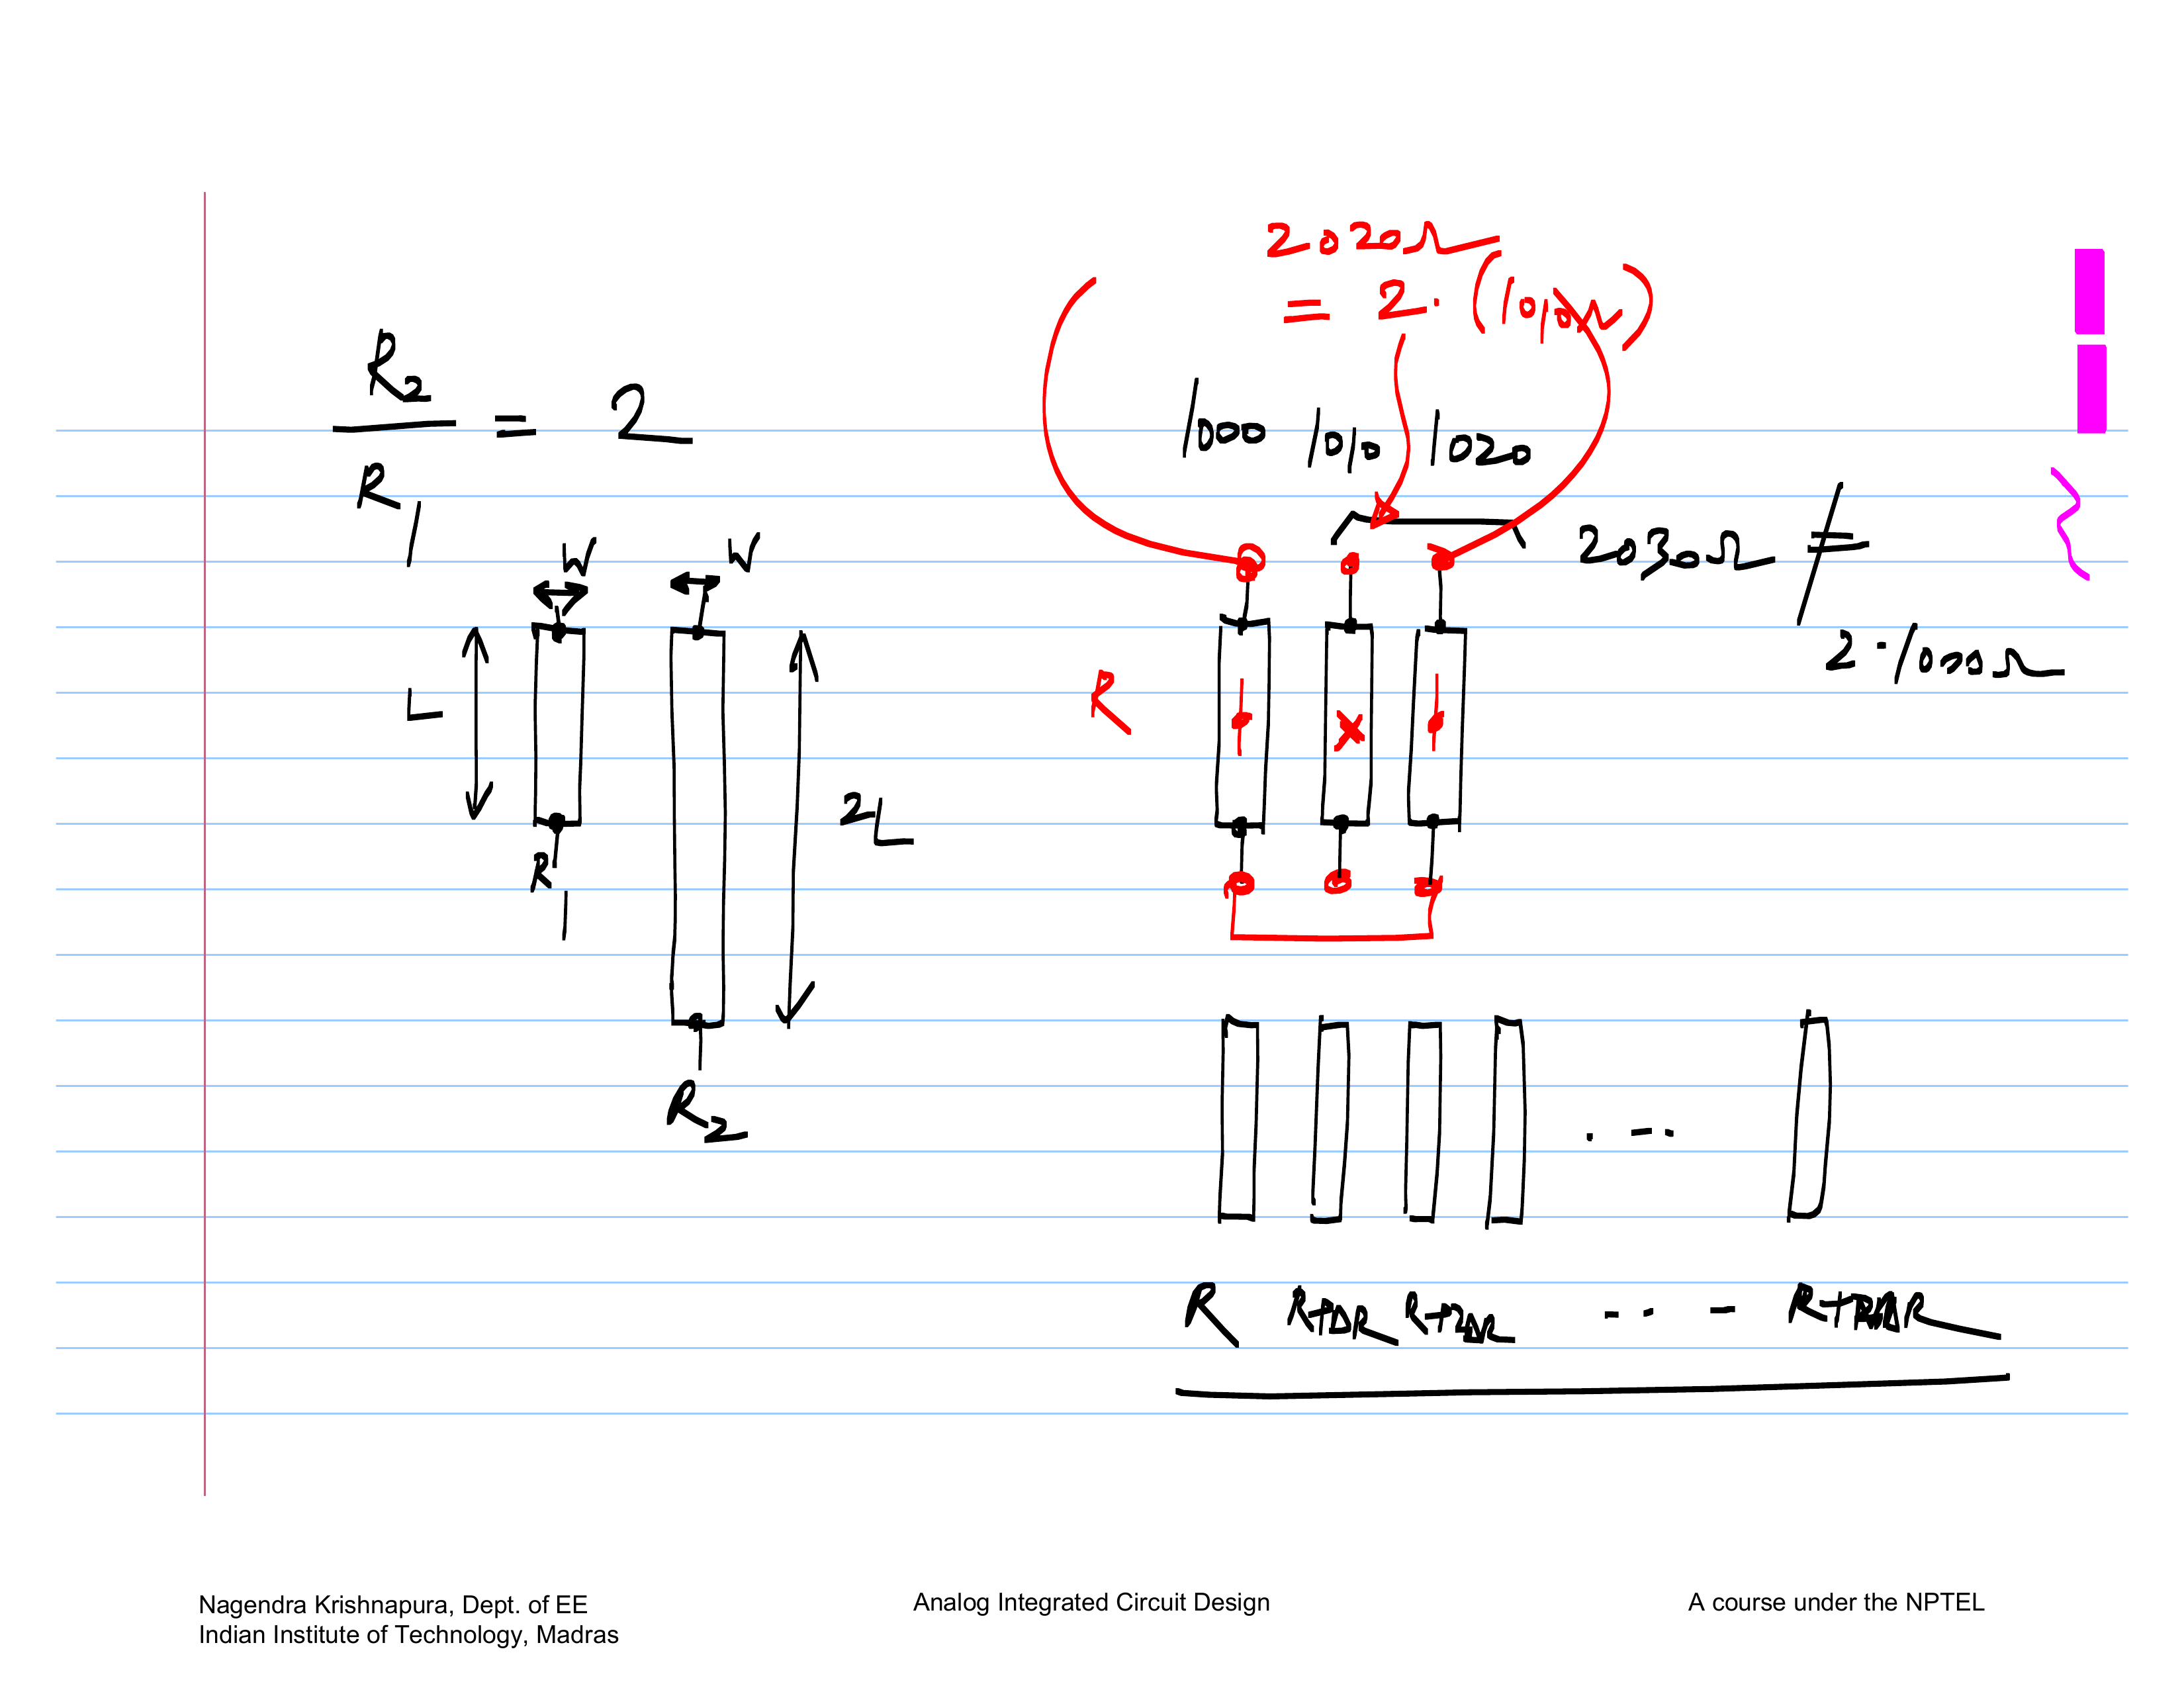 R2/R1 = 2
W
W
L
2L
R1
R2
2020Ω
= 2·(1010Ω)
1000 1010 1020
2030Ω ≠
2·1000Ω
R
R R+ΔR R+2ΔR ... R+
Nagendra Krishnapura, Dept. of EE
Indian Institute of Technology, Madras
Analog Integrated Circuit Design
A course under the NPTEL